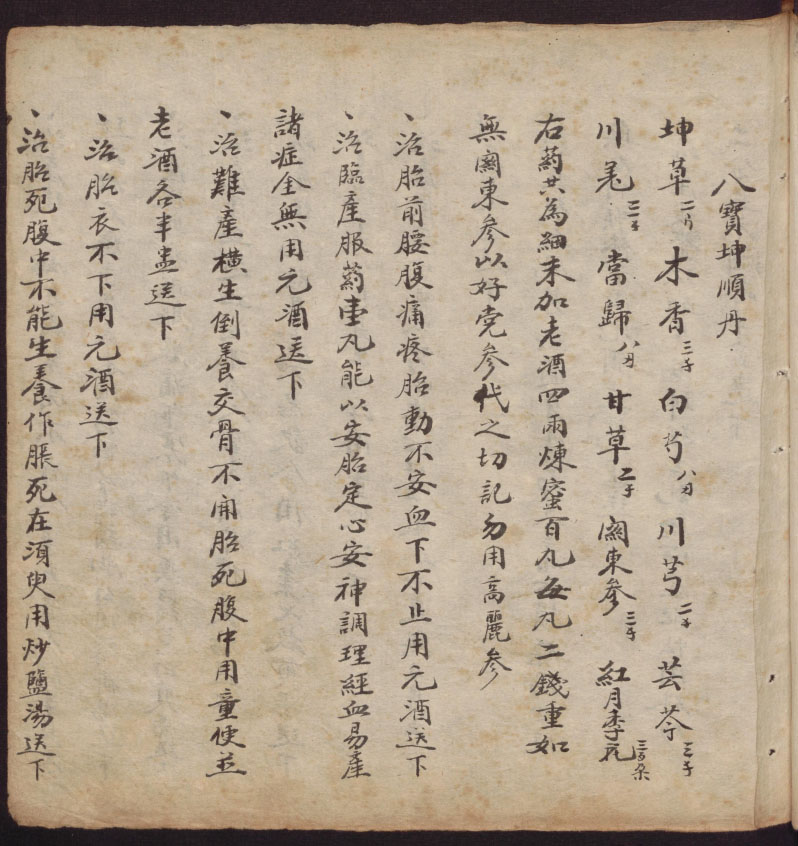 八寶坤順丹
坤草 木香 白芍 川芎 芸苓
川羌 當歸 甘草 關東參 紅月季花
右药共為細末加老酒四兩煉蜜百丸每丸二錢重如
無關東參以好党參代之切記勿用高麗參
、治胎前腰腹痛疼胎動不安血下不止用元酒送下
、治臨產服药壹丸能以安胎定心安神調理經血易產
諸症全無用元酒送下
、治難產橫生倒養交骨不開胎死腹中用童便並
老酒各半盅送下
、治胎衣不下用元酒送下
、治胎死腹中不能生養作脹死在須臾用炒鹽湯送下